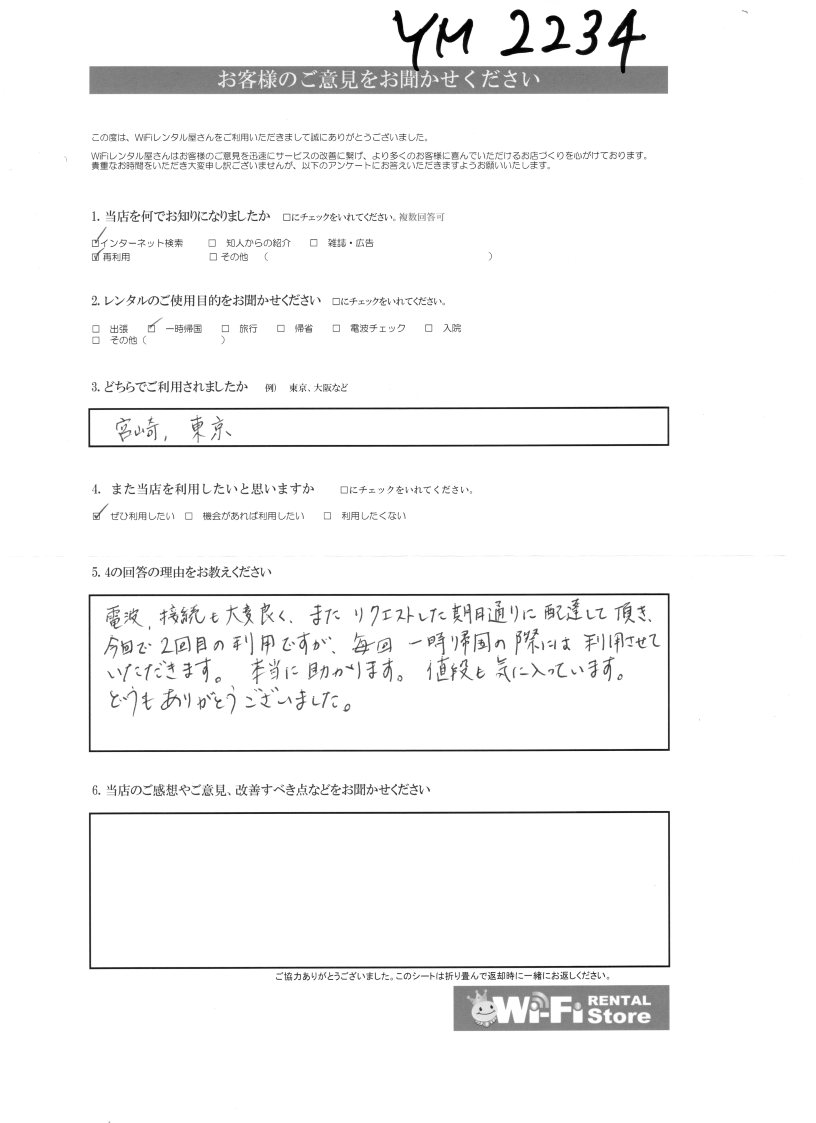 YM 2234
お客様のご意見をお聞かせください
この度は、WiFiレンタル屋さんをご利用いただきまして誠にありがとうございました。
WiFiレンタル屋さんはお客様のご意見を迅速にサービスの改善に繋げ、より多くのお客様に喜んでいただけるお店づくりを心がけております。
貴重なお時間をいただき大変申し訳ございませんが、以下のアンケートにお答えいただきますようお願いいたします。
1. 当店を何でお知りになりましたか □にチェックをいれてください。複数回答可
☑インターネット検索 □ 知人からの紹介 □ 雑誌・広告
☑再利用 □その他 ( )
2. レンタルのご使用目的をお聞かせください □にチェックをいれてください。
□ 出張 ☑ 一時帰国 □ 旅行 □ 帰省 □ 電波チェック □ 入院
□ その他 ( )
3. どちらでご利用されましたか 例) 東京、大阪など
宮崎, 東京
4. また当店を利用したいと思いますか □にチェックをいれてください。
☑ ぜひ利用したい □ 機会があれば利用したい □ 利用したくない
5. 4の回答の理由をお教えください
電波, 接続も大変良く、また リクエストした期日通りに配達して頂き、
今回で2回目の利用ですが、毎回 一時帰国の際には利用させて
いただきます。 本当に助かります。 値段も気に入っています。
どうもありがとうございました。
6. 当店のご感想やご意見、改善すべき点などをお聞かせください
ご協力ありがとうございました。このシートは折り畳んで返却時に一緒にお返しください。
Wi-Fi RENTAL Store